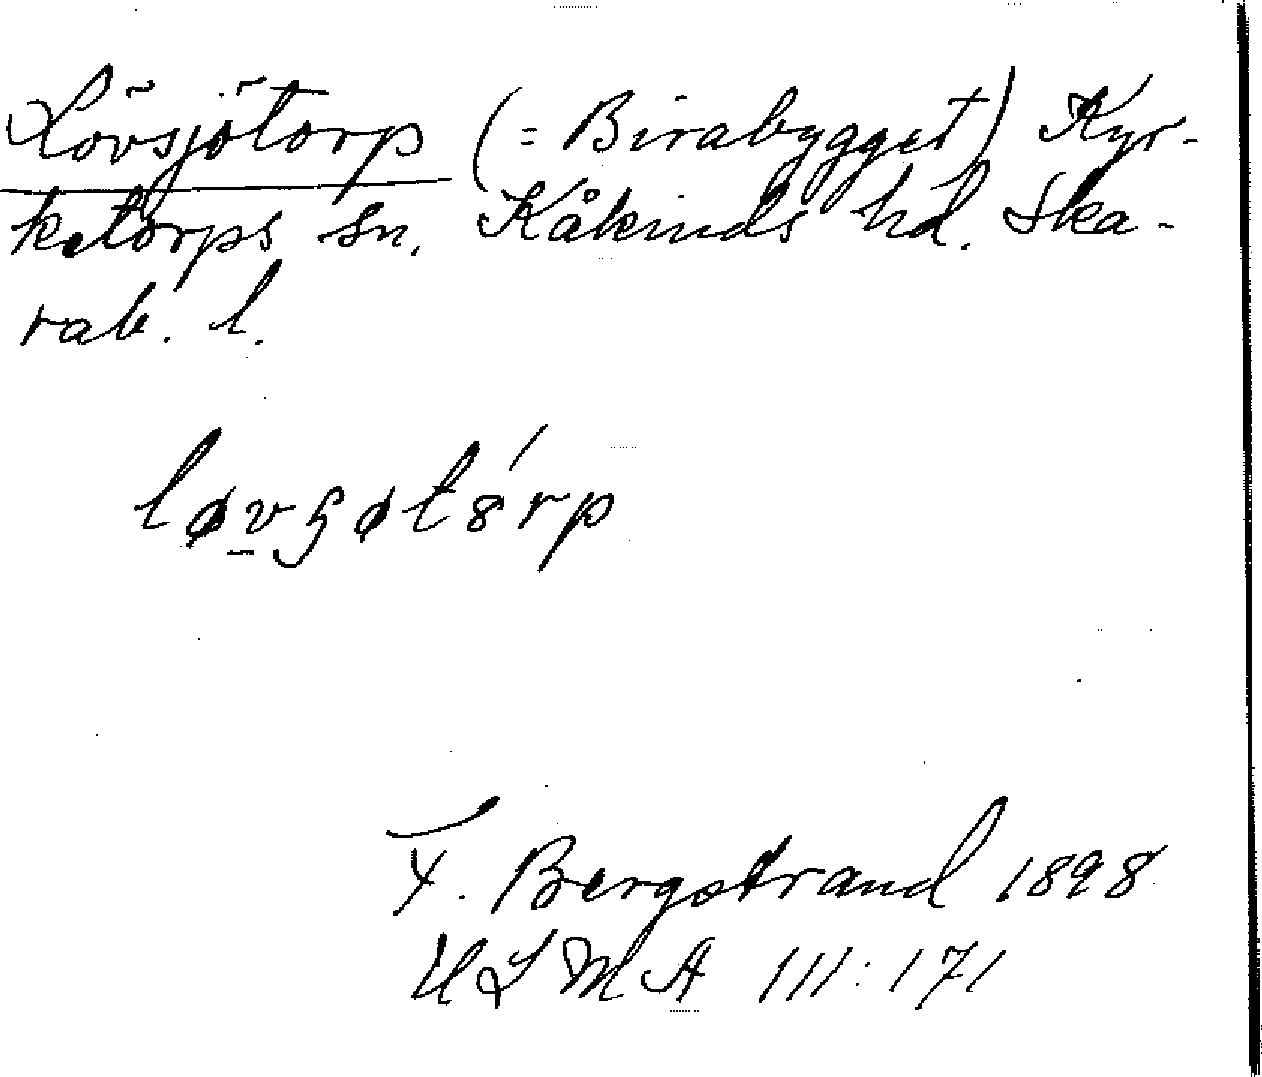 Lövsjötorp (= Birabygget) Kyr-
ketorps sn. Kåkinds hd. Ska-
rab. l.
løvɧøt8́rp
F. Bergstrand 1898
ULMA 111:171